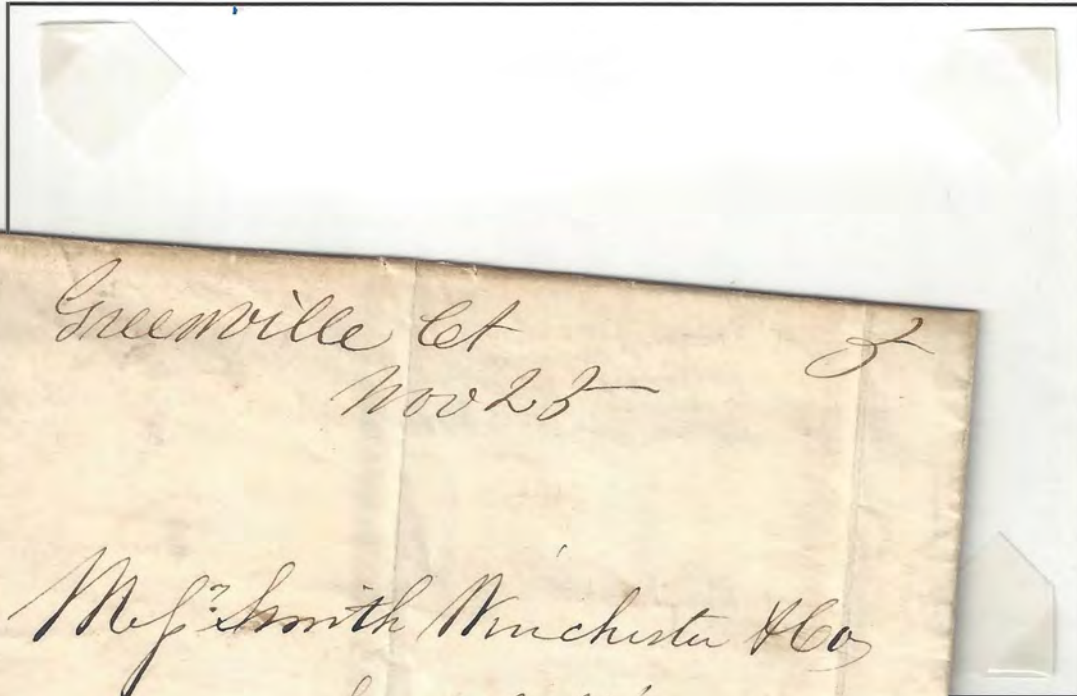 Greenville Ct 5
Nov 25
Messrs Smith Winchester & Co